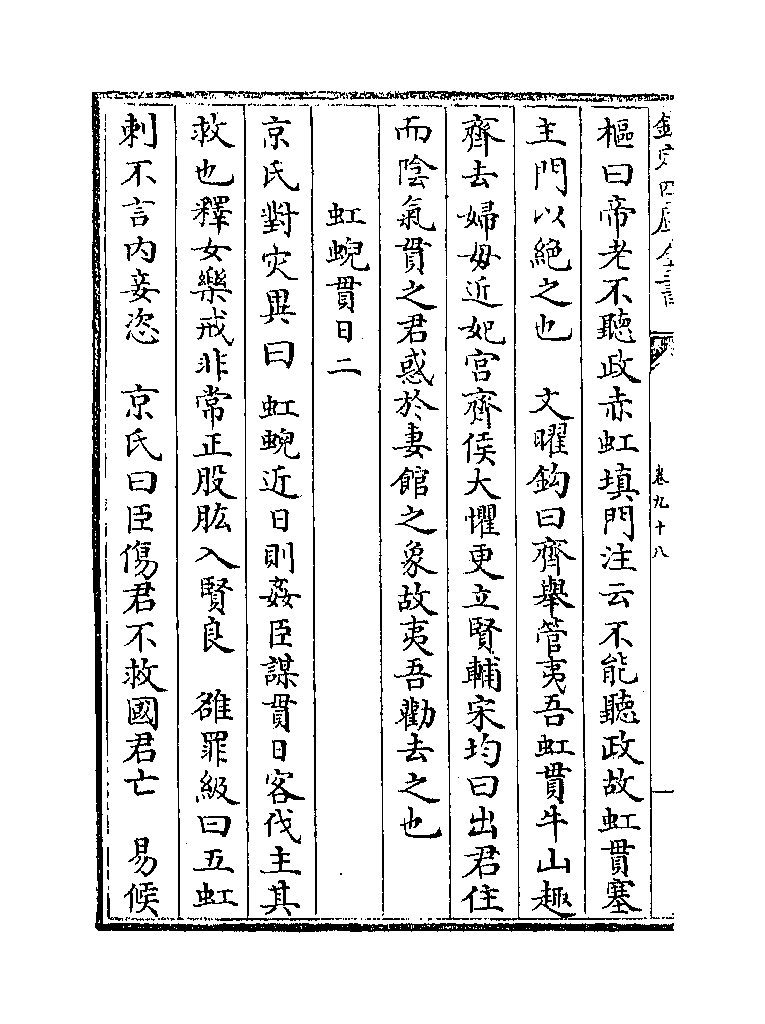 欽定四庫全書
卷九十八
樞曰帝老不聽政赤虹填門注云不能聽政故虹貫塞
主門以絶之也　文曜鈎曰齊舉管夷吾虹貫牛山趣
齊去婦毋近妃宫齊侯大懼更立賢輔宋均曰出君住
而陰氣貫之君惑於妻館之象故夷吾勸去之也
虹蜺貫日二
京氏對灾異曰　虹蜺近日則姦臣謀貫日客伐主其
救也釋女樂戒非常正股肱入賢良　雒罪級曰五虹
刺不言内妾恣　京氏曰臣傷君不救國君亡　易候